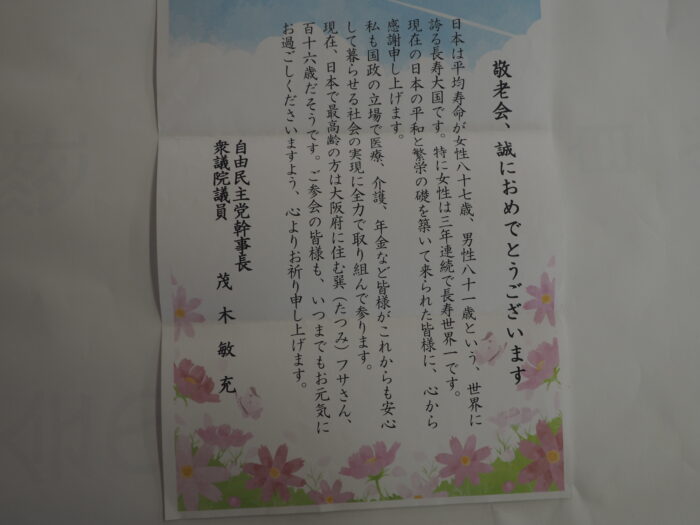 敬老会、誠におめでとうございます
日本は平均寿命が女性八十七歳、男性八十一歳という、世界に
誇る長寿大国です。特に女性は三年連続で長寿世界一です。
現在の日本の平和と繁栄の礎を築いて来られた皆様に、心から
感謝申し上げます。
私も国政の立場で医療、介護、年金など皆様がこれからも安心
して暮らせる社会の実現に全力で取り組んで参ります。
現在、日本で最高齢の方は大阪府に住む巽(たつみ)フサさん、
百十六歳だそうです。ご参会の皆様も、いつまでもお元気に
お過ごしくださいますよう、心よりお祈り申し上げます。
自由民主党幹事長
衆議院議員 茂木敏充